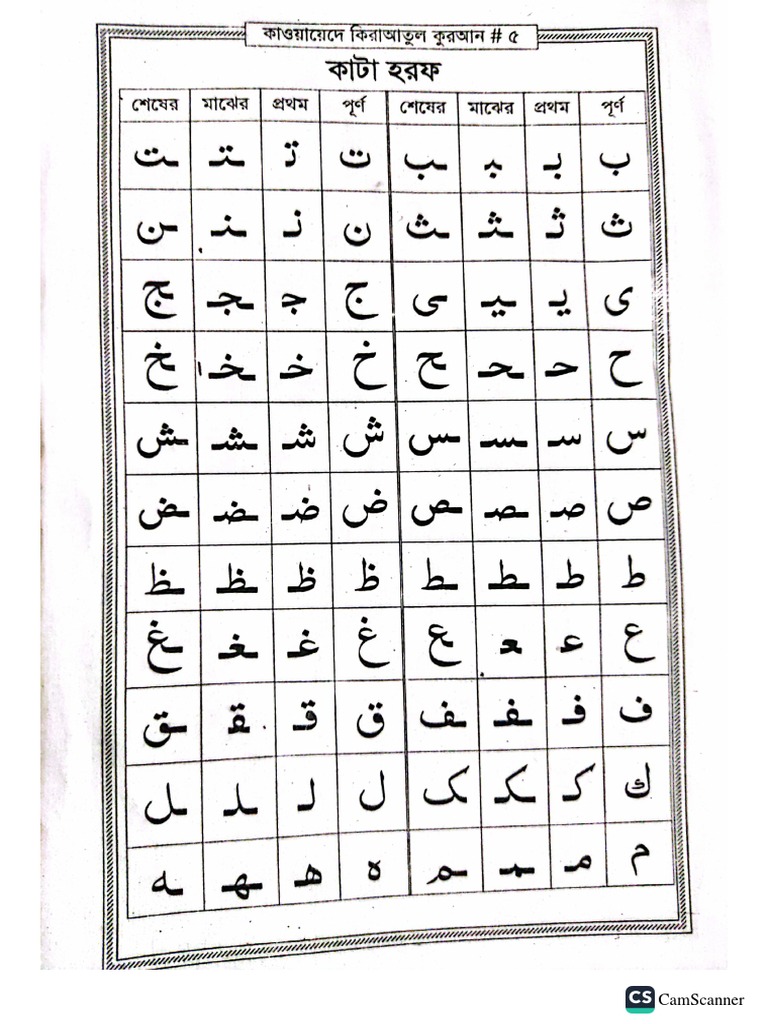 কাওয়ায়েদে কিরাআতুল কুরআন # ৫
কাটা হরফ
শেষের মাঝের প্রথম পূর্ণ শেষের মাঝের প্রথম পূর্ণ
ب بـ ـبـ ـب ت تـ ـتـ ـت
ث ثـ ـثـ ـث ن نـ ـنـ ـن
ی یـ ـیـ ـی ج جـ ـجـ ـج
ح حـ ـحـ ـح خ خـ ـخـ ـخ
س سـ ـسـ ـس ش شـ ـشـ ـش
ص صـ ـصـ ـص ض ضـ ـضـ ـض
ط طـ ـطـ ـط ظ ظـ ـظـ ـظ
ع عـ ـعـ ـع غ غـ ـغـ ـغ
ف فـ ـفـ ـف ق قـ ـقـ ـق
ك کـ ـکـ ـک ل لـ ـلـ ـل
م مـ ـمـ ـم ه هـ ـهـ ـه
CS CamScanner